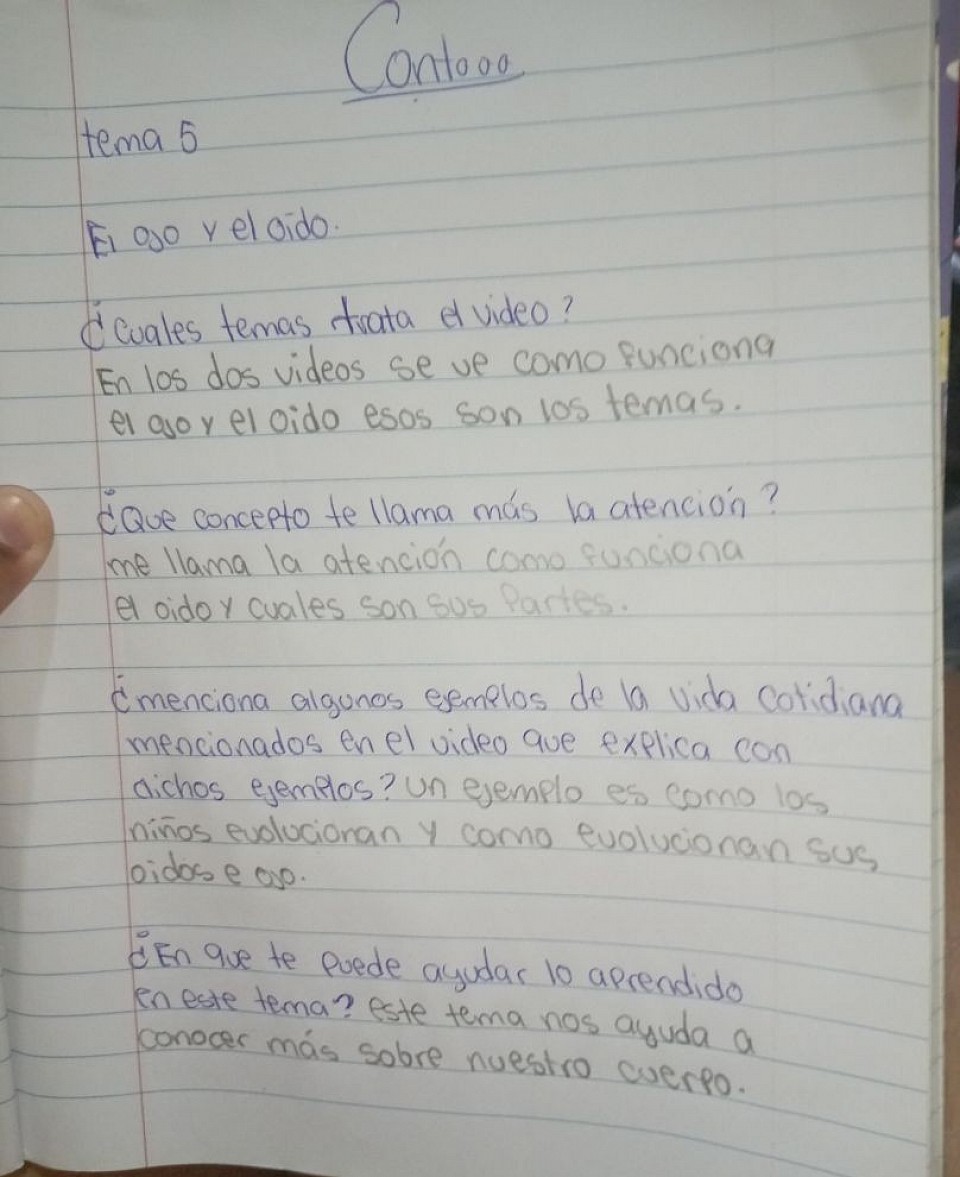 Contooo
tema 5
El ojo y el oido.
¿Cuales temas trata el video?
En los dos videos se ve como funciona
el ojo y el oido esos son los temas.
¿Que concepto te llama más la atención?
me llama la atención como funciona
el oido y cuales son sus Partes.
¿menciona algunos ejemplos de la vida cotidiana
mencionados en el video que explica con
dichos ejemplos? Un ejemplo es como los
niños evolucionan y como evolucionan sus
oidos e ojo.
¿En que te puede ayudar lo aprendido
en este tema? este tema nos ayuda a
conocer más sobre nuestro cuerpo.